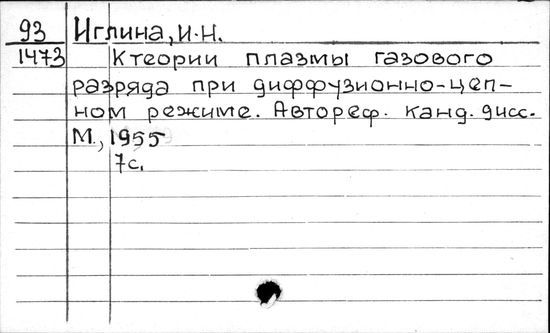 93 Иглина, И.Н.
1473 К теории плазмы газового
разряда при диффузионно-цеп-
ном режиме. Автореф. канд. дисс.
М., 1955
7с.